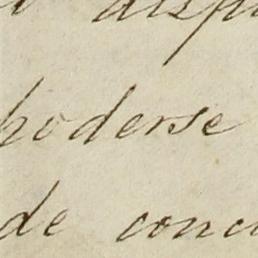 disp
poderse
de conc